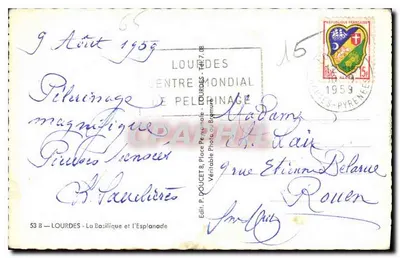 66
9 Août 1959
15
LOURDES
CENTRE MONDIAL
DE PELERINAGE
1959
Pélerinage
magnifique
Pieuses pensées
Madame
9 rue Etienne Delarue
Rouen
Edit. P. DOUCET 8, Place Peyramale - LOURDES - Tél. 7.08
Véritable Photo au Bromure
53 B - LOURDES - La Basilique et l'Esplanade